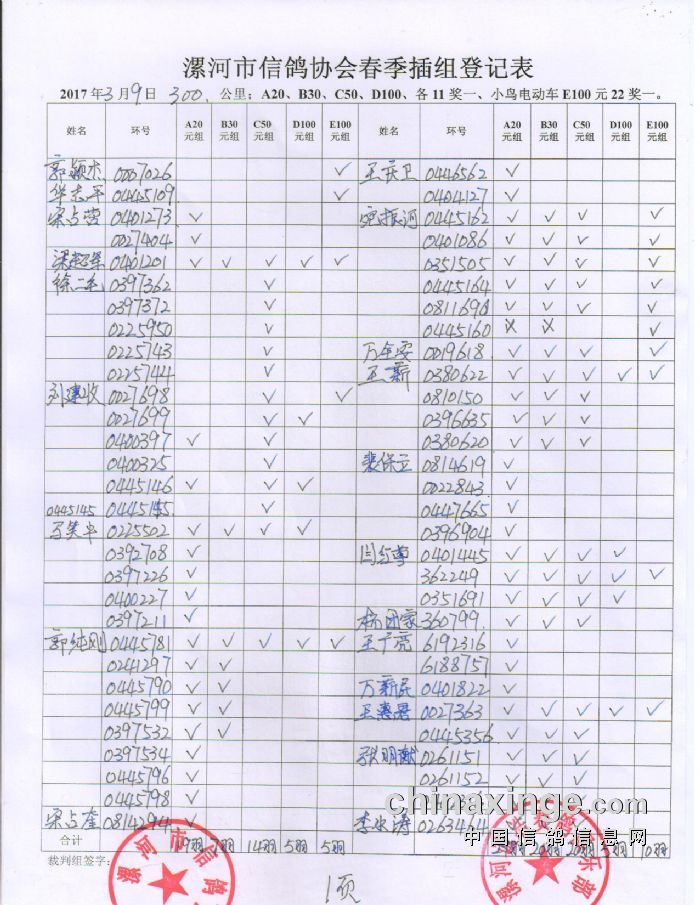 漯河市信鸽协会春季插组登记表
2017年3月9日 300. 公里：A20、B30、C50、D100、各11奖一、小鸟电动车E100元22奖一。
姓名 环号 A20元组 B30元组 C50元组 D100元组 E100元组 姓名 环号 A20元组 B30元组 C50元组 D100元组 E100元组
郭颖杰 0007026 ✓ 王庆卫 0446562 ✓
华志平 0445109 ✓ 0404127 ✓
宋占营 0401273 ✓ 宛振河 0445162 ✓ ✓ ✓ ✓
0027404 ✓ 0401086 ✓ ✓ ✓ ✓
梁超军 0401201 ✓ ✓ ✓ ✓ ✓ 0351505 ✓ ✓ ✓ ✓
徐二毛 0397362 ✓ 0445164 ✓ ✓ ✓ ✓
0397372 ✓ 0811690 ✓ ✓ ✓ ✓
0225950 ✓ 0445160 ✓
0225743 ✓ 万全安 0019618 ✓ ✓ ✓ ✓
0225744 ✓ 王新 0380622 ✓ ✓ ✓ ✓ ✓
刘建收 0027698 ✓ ✓ 0810150 ✓ ✓ ✓
0027699 ✓ ✓ 0396635 ✓ ✓ ✓
0400397 ✓ ✓ 0380620 ✓ ✓ ✓
0400325 ✓ 裴保立 0814619 ✓
0445146 ✓ ✓ ✓ 0022843 ✓
0445145 0445145 ✓ 0447665 ✓
0225502 ✓ ✓ ✓ ✓ 0396904 ✓
0392708 ✓ 闫红 0401445 ✓ ✓ ✓ ✓
0397226 ✓ 362249 ✓ ✓ ✓ ✓ ✓
0400227 ✓ 0351691 ✓ ✓ ✓ ✓
0397211 ✓ 杨团家 360799 ✓ ✓ ✓
郭纯刚 0445781 ✓ ✓ ✓ ✓ ✓ 王广亮 6192316 ✓
0241297 ✓ ✓ 6188757 ✓
0445790 ✓ ✓ 万新民 0401822 ✓
0445799 ✓ ✓ 王惠君 0027363 ✓ ✓ ✓ ✓ ✓
0397532 ✓ ✓ 0445356 ✓ ✓ ✓
0397534 ✓ 张明献 0261151 ✓ ✓ ✓
0445796 ✓ 0261152 ✓ ✓ ✓
0445798 ✓
宋占奎 0814294 ✓ 李永涛 0263464
合计 19羽 7羽 14羽 5羽 5羽 20羽 20羽 5羽 10羽
裁判组签字：
漯河市信鸽
漯河
鸽俱乐部
1页
chinaxinge.com
中国信鸽信息网